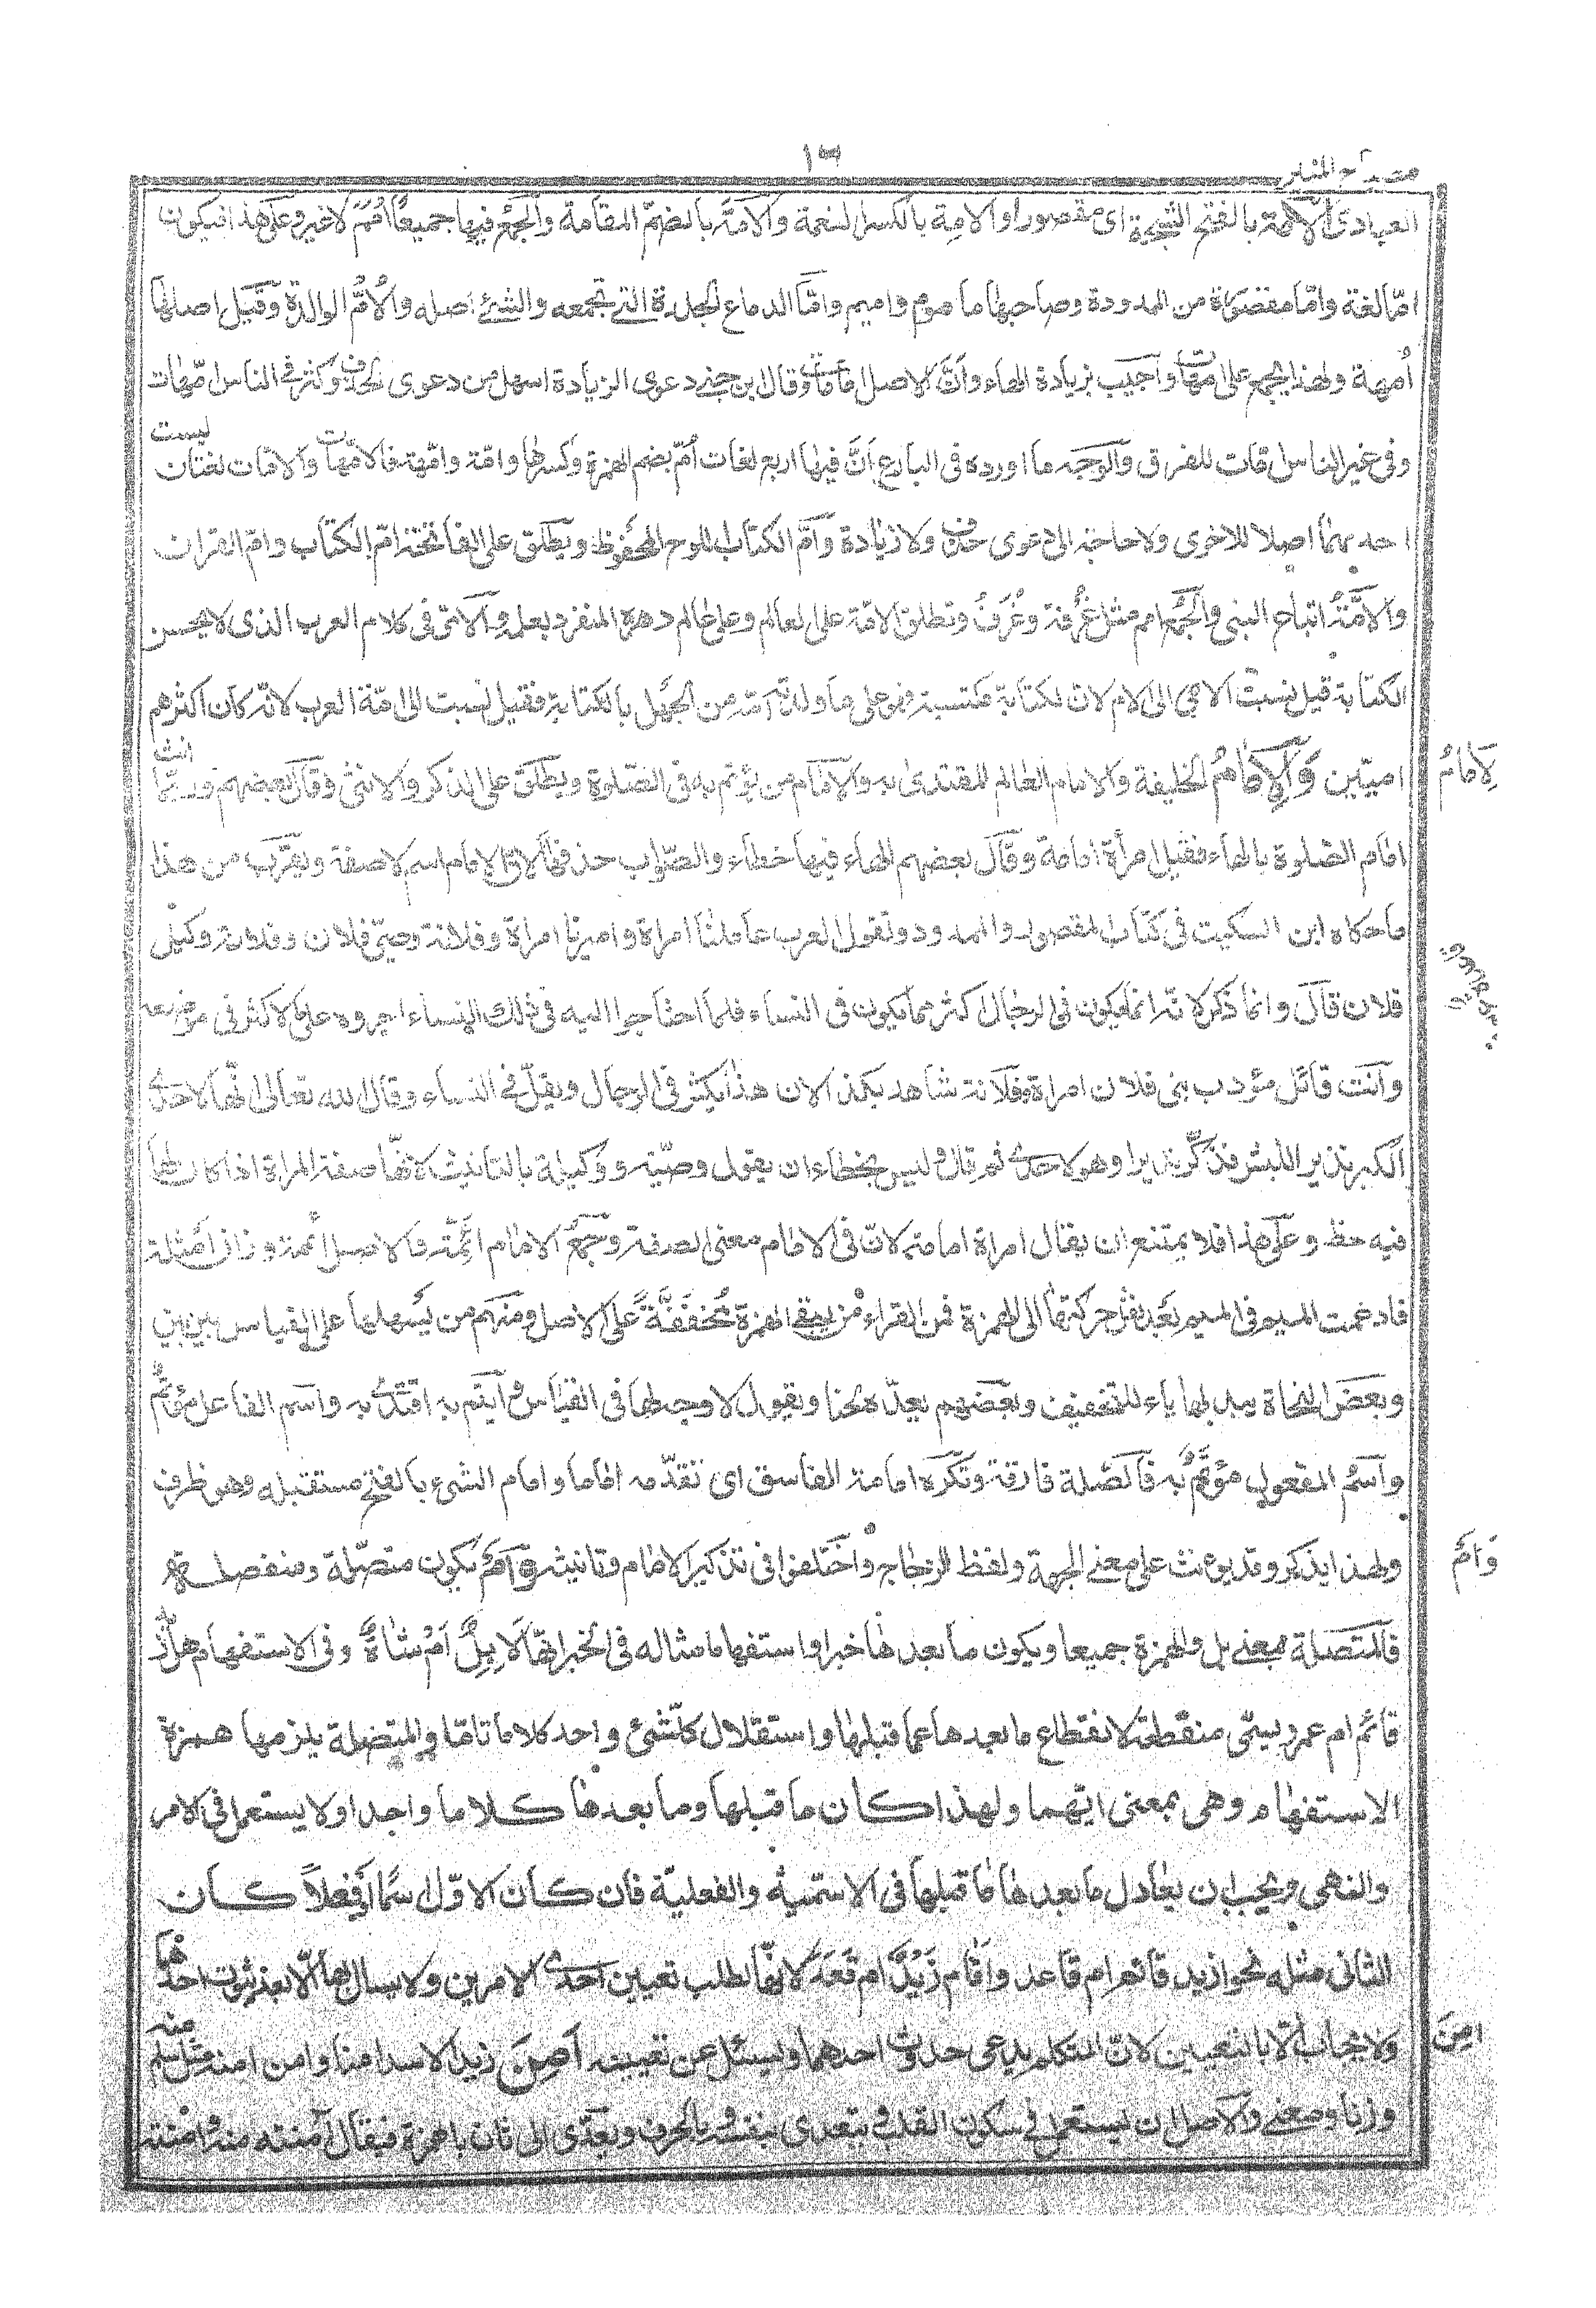 مصباح المنير
١٣
العبادى الأمّة بالفتح الشجّة اى مقصورا والامة بالكسر النعمة والأمّة بالضم المقامة والجمع فيها جميعا أمم لا غير وعلى هذا فيكون
امّا لغة وامّا مقصورة من الممدودة وصاحبها مأموم واميم وامّ الدماغ الجلدة التى تجمعه والشئ اصله والأمّ الوالدة وقيل اصلها
أمهة ولهذا يجمع على امهات وأجيب بزيادة الهاء وأنّ الاصل امّات وقال ابن جنى دعوى الزيادة اسهل من دعوى الحذف وكثر فى الناس امّهات
وفى غير الناس امّات للفرق والوجه ما اورده فى البارع أنّ فيها اربع لغات أمّ بضم الهمزة وكسرها وامّة وامّهة فالامّهات والامّات لغتان ليست
احديهما اصلا للاخرى ولا حاجة الى دعوى حذف ولا زيادة وامّ الكتاب اللوح المحفوظ ويطلق على الفاتحة امّ الكتاب وامّ القران
والأمّة اتباع النبى والجمع امم مثل غرفة وغرف وتطلق الامّة على العالم وعلى عالم دهره المنفرد بعلمه والامّى فى كلام العرب الذى لا يحسن
الكتابة قيل نسبت الامى الى الام لان الكتابة مكتسبة فهو على ما ولدته امّه من الجهل بالكتابة فقيل نسبت الى امّة العرب لانّه كان اكثرهم
اميّين والامام الخليفة والامام العالم المقتدى به والامام من يؤتم به فى الصلوة ويطلق على الذكر والانثى وقال بعضهم وربّما انث
امام الصلوة بالهاء فقيل امرأة امامة وقال بعضهم الهاء فيها خطاء والصّواب حذفها لانّ الامام اسم لا صفة ويقرب من هذا
ما حكاه ابن السكيت فى كتاب المقصور والممدود وتقول العرب عاملنا امراة واميرنا امراة وفلانة وصىّ فلان وفلانة وكيل
فلان قال وانما ذكر لانّه انما يكون فى الرجال اكثر مما يكون فى النساء فلما احتاجوا اليه فى ذلك النساء اجروه على الاكثر فى موضعه
وانت قائل مؤدب بنى فلان امراة وفلانة شاهد بكذا لان هذا يكثر فى الرجال ويقلّ فى النساء وقال الله تعالى انّها لاحدى
الكبر نذيرا للبشر فذكّر نذيرا وهو لاحدى ثم قال وليس بخطاء ان يقول وصيّة ووكيلة بالتانيث لانها صفة المراة اذا كان لها
فيه حظ وعلى هذا فلا يمتنع ان يقال امراة امامة لان فى الامام معنى الصفة وجمع الامام ائمّة والاصل أئممة وزان امثلة
فادغمت الميم فى الميم بعد نقل حركتها الى الهمزة فمن القراء من يبقى الهمزة مخففّة على الاصل ومنهم من يسهلها على القياس بين بين
وبعض النحاة يبدلها ياء للتخفيف وبعضهم يعدّه لحنا ويقول لا وجه لها فى القياس وايتم به اقتدى به واسم الفاعل مؤتمّ
واسم المفعول مؤتمّ به فالصّلة فارقة وتكره امامة الفاسق اى تقدّمه اماما وامام الشئ بالفتح مستقبله وهو ظرف
ولهذا يذكر وقد يؤنث على معنى الجهة ولفظ الزجاج واختلفوا فى تذكير الامام وتانيثه وام تكون متصلة ومنفصلة
فالمتصلة بمعنى بل والهمزة جميعا ويكون ما بعدها خبرا واستفهاما مثاله فى الخبر انّها لابل أم شاة وفى الاستفهام هل زيد
قائم ام عمرو يسمّى منقطعة لانقطاع ما بعدها عما قبلها واستقلال كل شئ واحد كلاما تامّا والمتصلة يلزمها همزة
الاستفهام وهى بمعنى ايّهما ولهذا كان ما قبلها وما بعدها كلاما واحدا ولا يستعمل فى الامر
والنهى ويجب ان يعادل ما بعدها ما قبلها فى الاسميّة والفعلية فان كان الاوّل اسما او فعلا كان
الثانى مثله نحو ازيد قائم ام قاعد واقام زيد ام قعد لانها لطلب تعيين احدى الامرين ولا يسال بها الّا بعد ثبوت احدهما
ولا يجاب الّا بالتعيين لانّ المتكلم يدعى حدوث احدهما ويسئل عن تعيينه أمن زيد الاسد امنا وامن منه مثل سلم
وزنا ومعنى والاصل ان يستعمل فى سكون القلب يتعدى بنفسه وبالحرف ويعدّى الى ثان بالهمزة فيقال آمنته منه وامنته
الامام
وام
امن